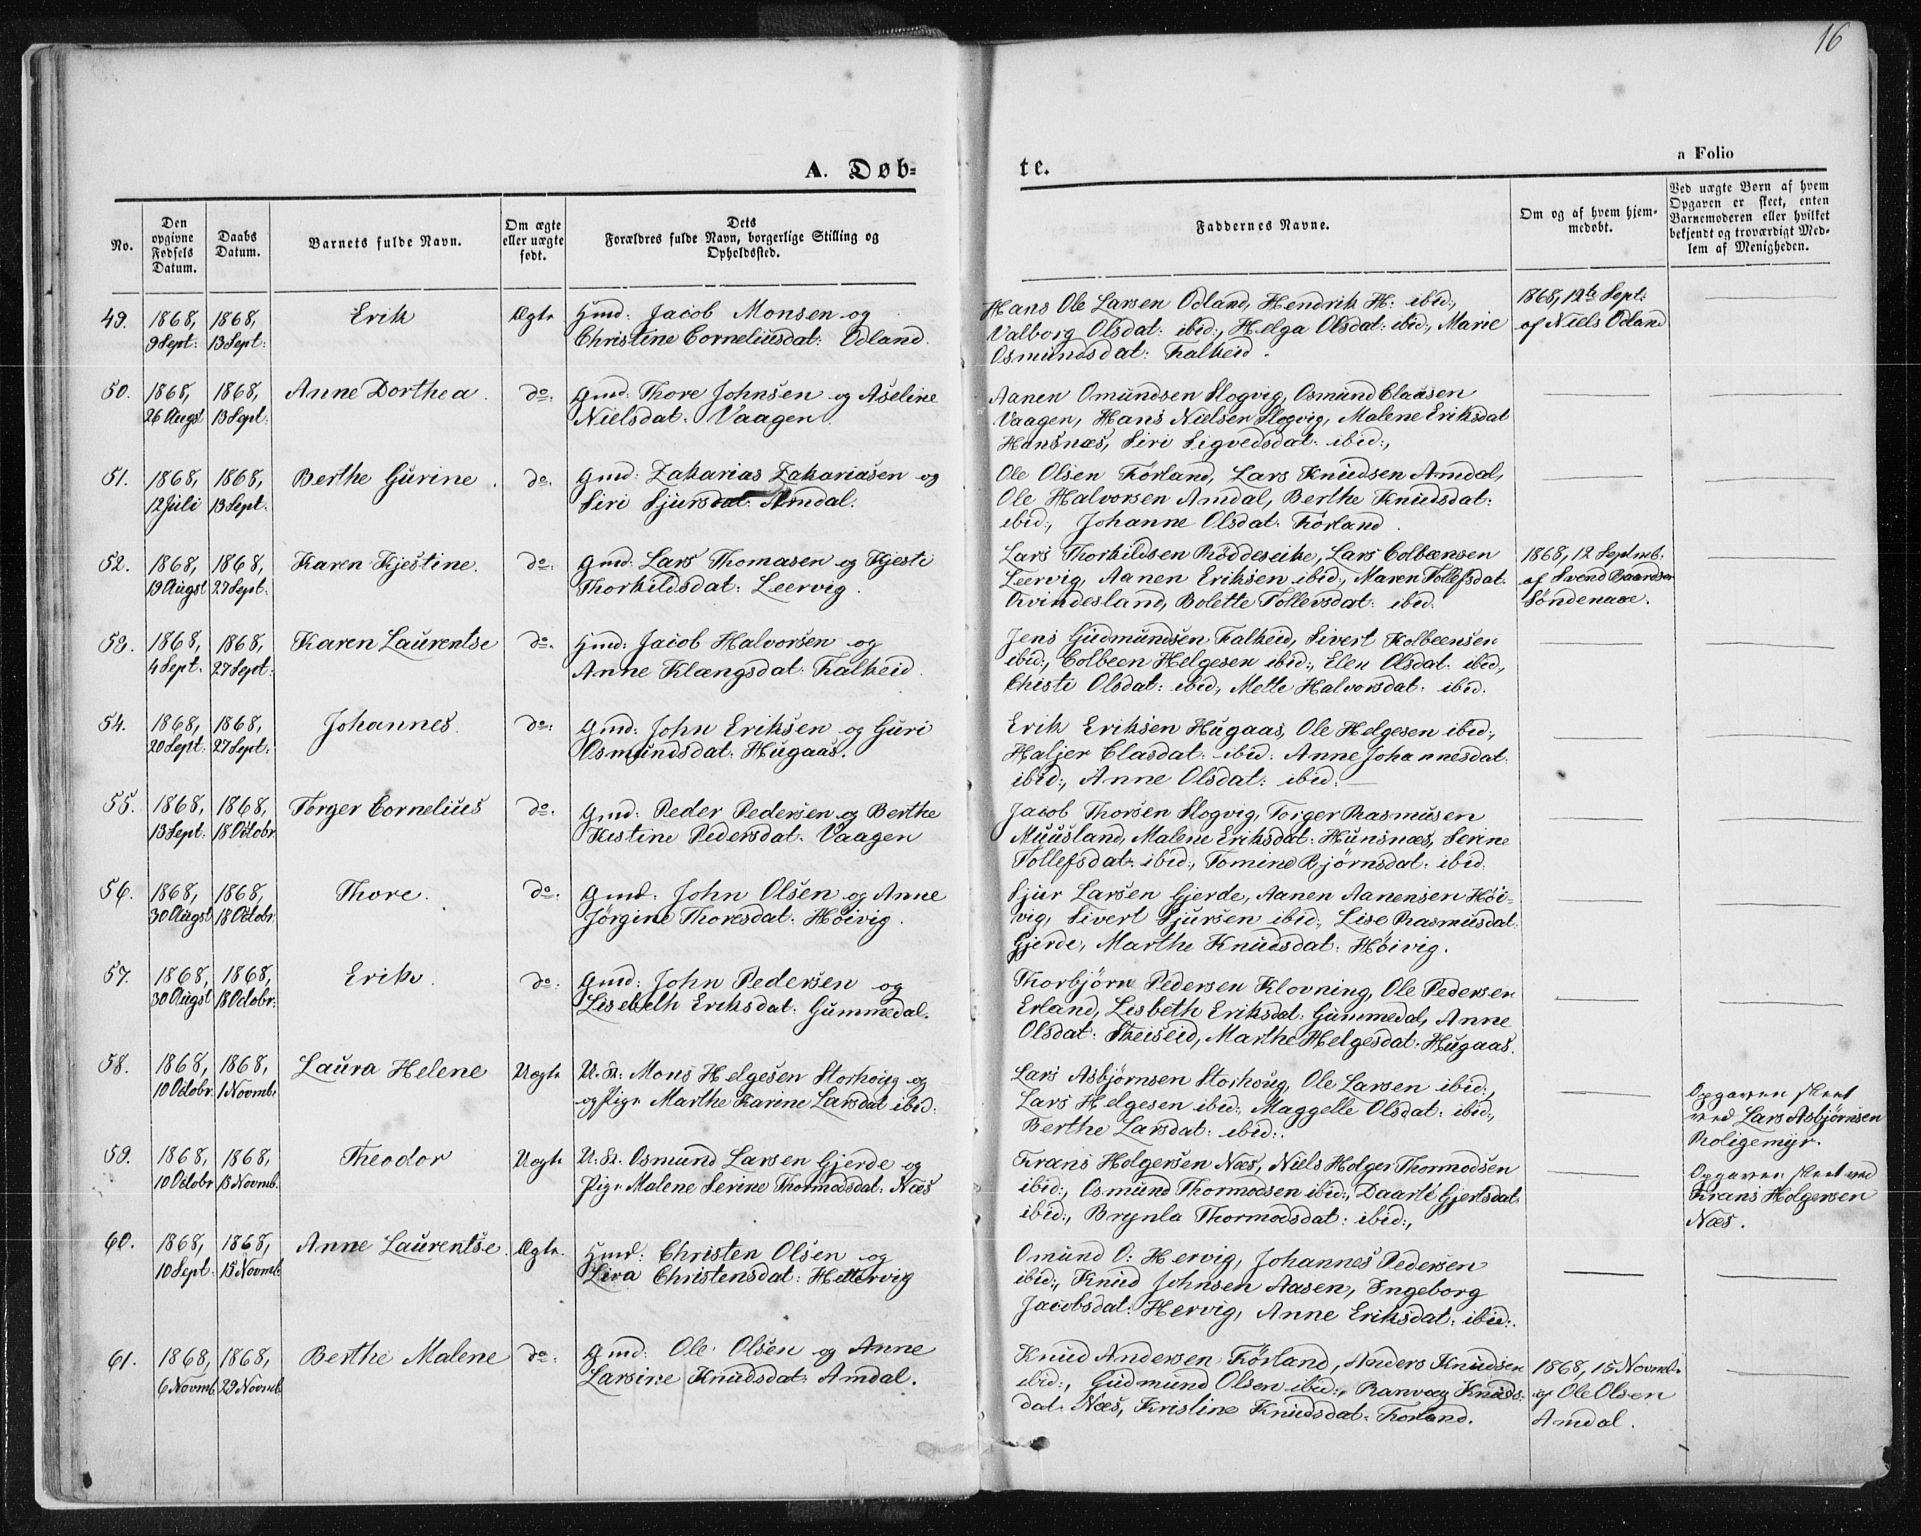 16
a Folio
A. Døb-
te.
No.
Den opgivne Fødsels Datum.
Daabs Datum.
Barnets fulde Navn.
Om ægte eller uægte født.
Dets Forældres fulde Navn, borgerlige Stilling og Opholdssted.
Faddernes Navne.
Om og af hvem hjemmedøbt.
Ved uægte Børn af hvem Opgaven er skeet, enten Barnemoderen eller hvilket bekjendt og troværdigt Medlem af Menigheden.
49. 1868, 9 Sept: 1868, 13 Sept: Erik Ægte
Gmd: Jacob Monsen og
Christine Corneliusdat: Odland.
Hans Ole Larsen Odland, Hendrik H: ibid:,
Valborg Olsdat: ibid:, Helga Olsdat: ibid:, Marie
Osmundsdat: Falkeid.
1868, 12te Sept:
af Niels Odland
50. 1868, 26 Augst 1868, 13 Sept: Anne Dorthea. do:
Gmd: Thore Johnsen og Aseline
Nielsdat: Vaagen.
Aanen Omundsen Slogvig, Osmund Claasen
Vaagen, Hans Nielsen Slogvig, Malene Eriksdat
Hunsnæs, Siri Sigvedsdat: ibid:,
51. 1868, 12 Juli 1868, 13 Sept: Berthe Gurine. do:
Gmd: Zakarias Zakariasen og
Siri Sjursdat: Amdal.
Ole Olsen Førland, Lars Knudsen Amdal,
Ole Halvorsen Amdal, Berthe Knudsdat:
ibid:, Johanne Olsdat: Førland.
52. 1868, 19 Augst 1868, 27 Sept: Karen Kjestine. do:
Gmd: Lars Thomasen og Kjesti
Thorkildsdat: Leervig.
Lars Thorkildsen Røddeseike, Lars Colbeensen
Leervig, Aanen Eriksen ibid:, Maren Tollefsdat:
Qvindesland, Bolette Tollevsdat: ibid.
1868, 12 Septmb:
af Svend Baardsen
Søndenaae.
53. 1868, 4 Sept: 1868, 27 Sept: Karen Laurentse do:
Hmd: Jacob Halvorsen og
Anne Klangsdat: Falkeid.
Jens Gudmundsen Falkeid, Sivert Kolbeensen
ibid:, Colbeen Helgesen ibid:, Elen Olsdat: ibid,
Christi Olsdat: ibid, Mette Halvorsdat: ibid.
54. 1868, 20 Sept: 1868, 27 Sept: Johannes. do:
Gmd: John Eriksen og Guri
Osmundsdat: Hugaas.
Erik Eriksen Hugaas, Ole Helgesen ibid:,
Haljer Clasdat: ibid: Anne Johannesdat:
ibid:, Anne Olsdat: ibid:
55. 1868, 13 Sept: 1868, 18 Octobr: Torger Cornelius do:
Gmd: Peder Pedersen og Berthe
Kistine Pedersdat: Vaagen
Jacob Thorsen Slogvig, Torger Rasmusen
Muusland, Malene Eriksdat: Hunsnæs, Serine
Tollefsdat: ibid:, Tomine Bjørnsdat: ibid.
56. 1868, 30 Augst 1868, 18 Octobr Thore. do:
Gmd: John Olsen og Anne
Jørgine Thoresdat: Høivig.
Sjur Larsen Gjerde, Aanen Aanensen Høi-
vig, Sivert Sjursen ibid:, Lise Rasmusdat:
Gjerde, Marthe Knudsdat: Høivig.
57. 1868, 30 Augst 1868, 18 Octobr: Erik. do:
Gmd: John Pedersen og
Lisebeth Eriksdat: Gummedal.
Thorbjørn Pedersen Klovning, Ole Pedersen
Erland, Lisbeth Eriksdat: Gummedal, Anne
Olsdat: Skeiseid, Marthe Helgesdat: Hugaas.
58. 1868, 10 Octobr 1868, 1 Novmb: Laura Helene Uægte
U. K: Mons Helgesen Storhoug og
og Pige Marthe Karine Larsdat ibid:
Lars Asbjørnsen Storhoug, Ole Larsen ibid:,
Lars Helgesen ibid:, Maggelle Olsdat: ibid:,
Berthe Larsdat: ibid:.
Opgaven skeet
ved Lars Asbjørnsen
Roligemyr.
59. 1868, 10 Octobr 1868, 15 Novmb: Theodor Uægte
U. K. Osmund Larsen Gjerde og
Pige Malene Serine Thormodsdat: Næs
Frans Holgersen Næs, Niels Holger Thormodsen
ibid:, Osmund Thormodsen ibid:, Daarté Gjertsdat:
ibid:, Brynla Thormodsdat: ibid:,
Opgaven skeet ved
Frans Holgersen
Næs.
60. 1868, 10 Sept: 1868, 15 Novmb: Anne Laurentse. Ægte.
Hmd: Christen Olsen og
Siva Christensdat: Hettervig
Omund O: Hervig, Johannes Pedersen
ibid:, Knud Johnsen Aasen, Ingeborg
Jacobsdat: Hervig, Anne Eriksdat: ibid:.
61. 1868, 6 Novmb: 1868, 29 Novmb: Berthe Malene do:
Gmd: Ole Olsen og Anne
Larsine Knudsdat: Amdal.
Knud Andersen Førland, Anders Knudsen
ibid:, Gudmund Olsen ibid:, Ranvæg Knuds-
dat: Næs, Kristine Knudsdat: Førland.
1868, 15 Novmb:
af Ole Olsen
Amdal.